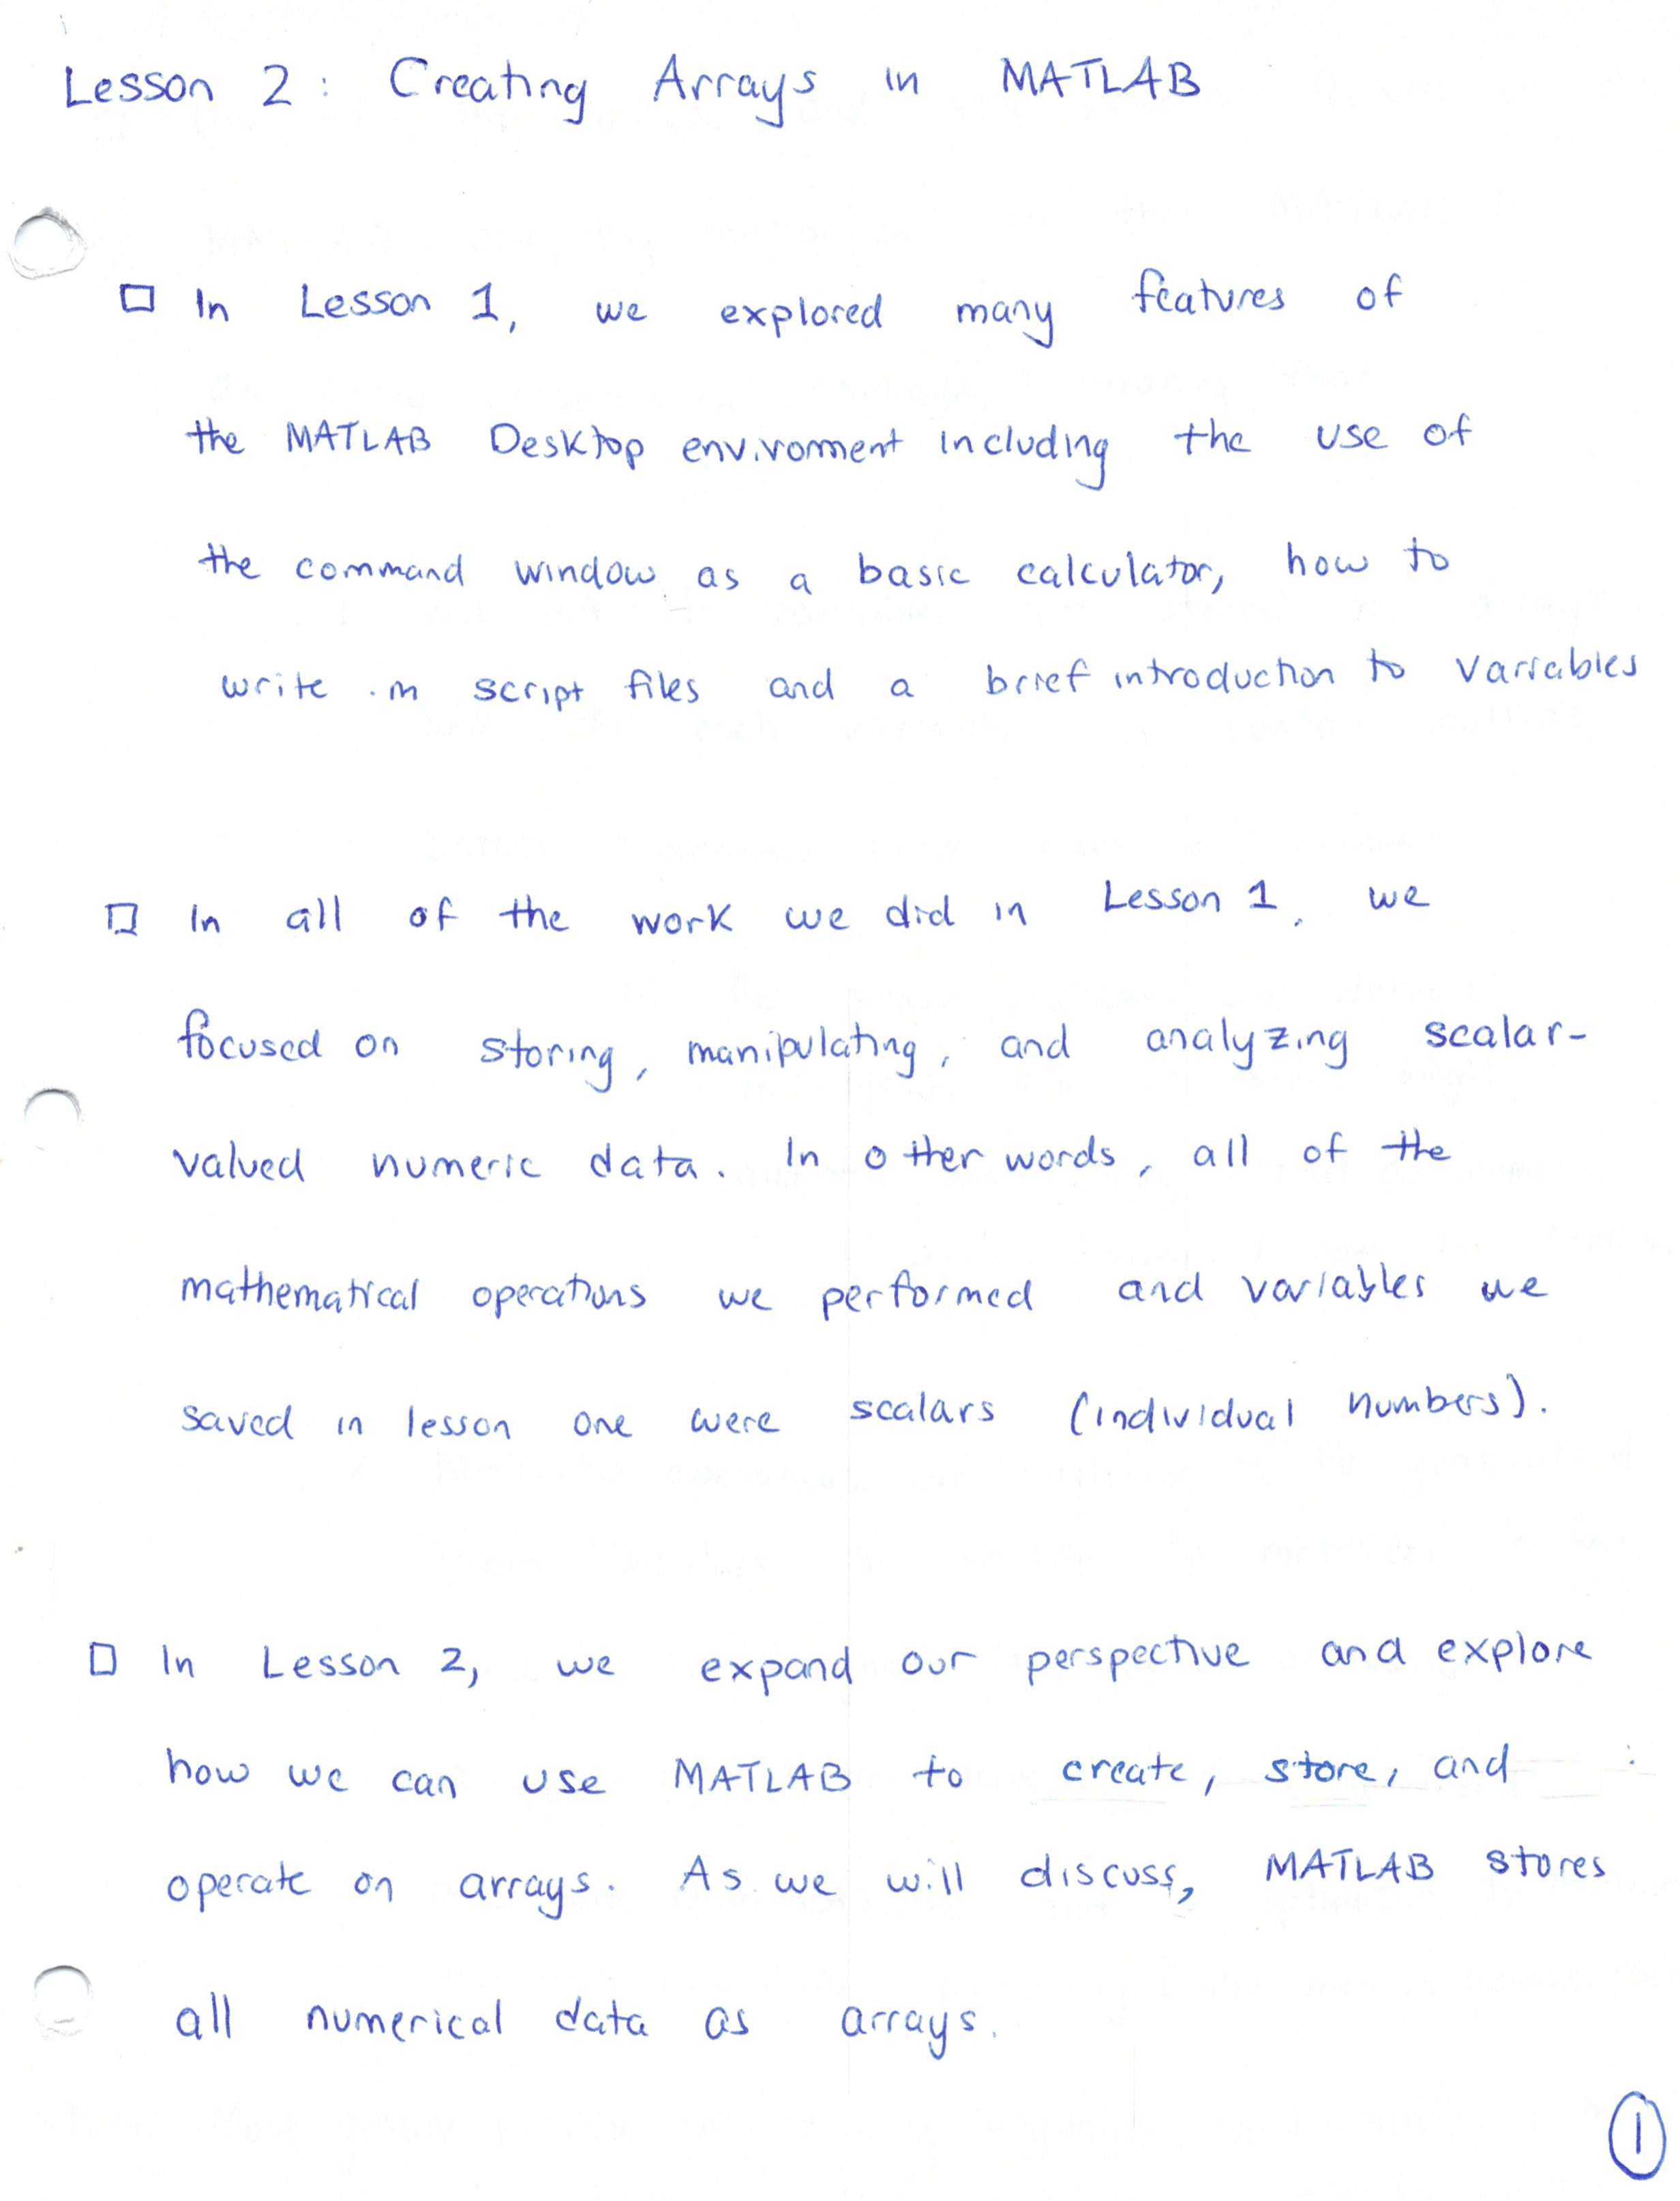 Lesson 2: Creating Arrays in MATLAB
In Lesson 1, we explored many features of
the MATLAB Desktop enviroment including the use of
the command window as a basic calculator, how to
write .m script files and a brief introduction to variables
In all of the work we did in Lesson 1, we
focused on storing, manipulating, and analyzing scalar-
valued numeric data. In other words, all of the
mathematical operations we performed and variables we
saved in lesson one were scalars (individual numbers).
In Lesson 2, we expand our perspective and explore
how we can use MATLAB to create, store, and
operate on arrays. As we will discuss, MATLAB stores
all numerical data as arrays.
1